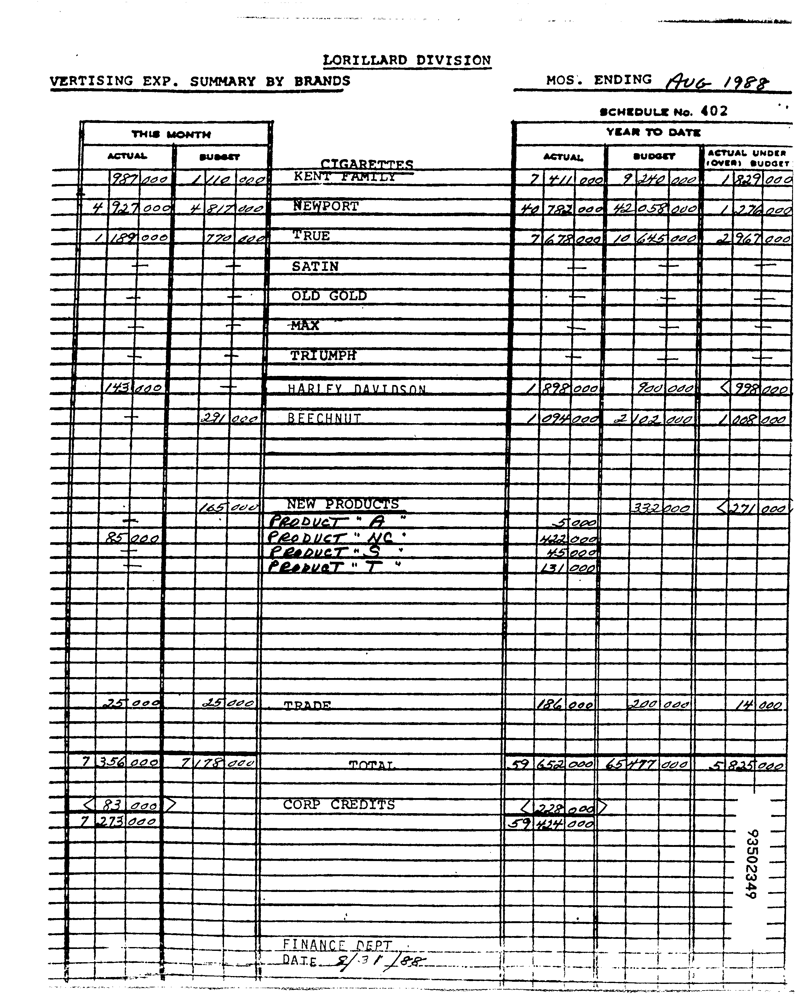 LORILLARD DIVISION
VERTISING EXP. SUMMARY BY BRANDS MOS. ENDING AUG 1988
SCHEDULE No. 402
THIS MONTH YEAR TO DATE
ACTUAL BUDGET CIGARETTES ACTUAL BUDGET ACTUAL UNDER (OVER) BUDGET
987 000 1 110 000 KENT FAMILY 7 411 000 9 240 000 1 829 000
4 927 000 4 817 000 NEWPORT 40 782 000 42 058 000 1 276 000
1 189 000 770 000 TRUE 7 678 000 10 645 000 2 967 000
— — SATIN — — —
— — OLD GOLD — — —
— — MAX — — —
— — TRIUMPH — — —
143 000 — HARLEY DAVIDSON 1 898 000 900 000 <998 000
— 291 000 BEECHNUT 1 094 000 2 102 000 1 008 000
165 000 NEW PRODUCTS 332 000 <271 000
— PRODUCT "A" 5 000
85 000 PRODUCT "NC" 422 000
— PRODUCT "S" 45 000
— PRODUCT "T" 131 000
25 000 25 000 TRADE 186 000 200 000 14 000
7 356 000 7 178 000 TOTAL 59 652 000 65 477 000 5 825 000
<83 000> CORP CREDITS <228 000>
7 273 000 59 424 000
93502349
FINANCE DEPT
DATE 8/31/88